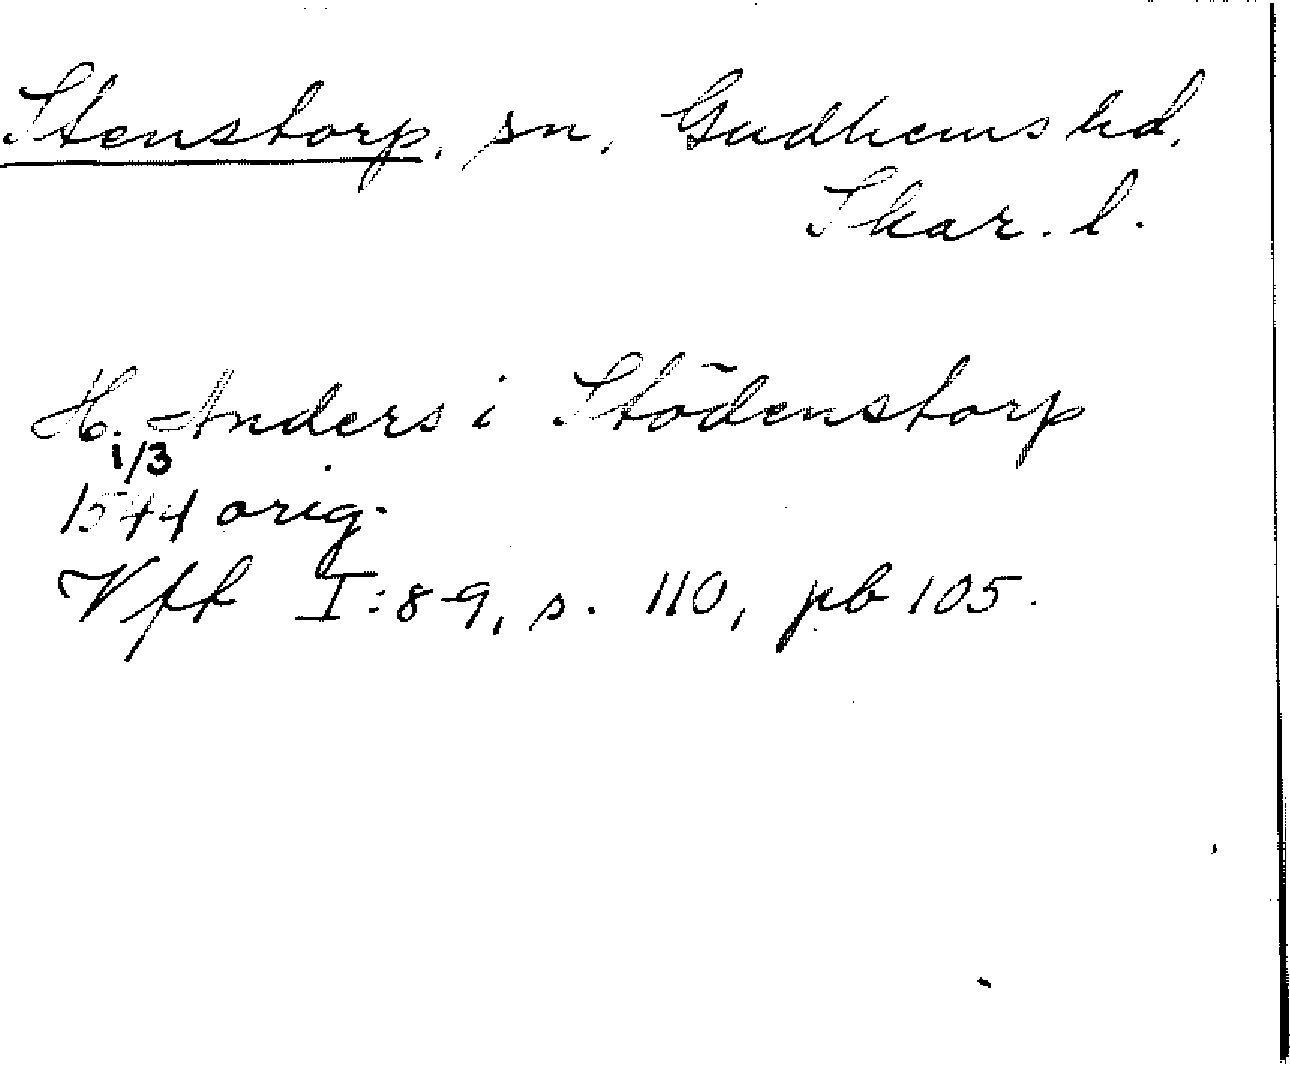 Stenstorp, sn, Gudhems hd,
Skar. l.
H. Anders i Stödenstorp
1/3
1544 orig.
Vff I:8-9, s. 110, pb 105.